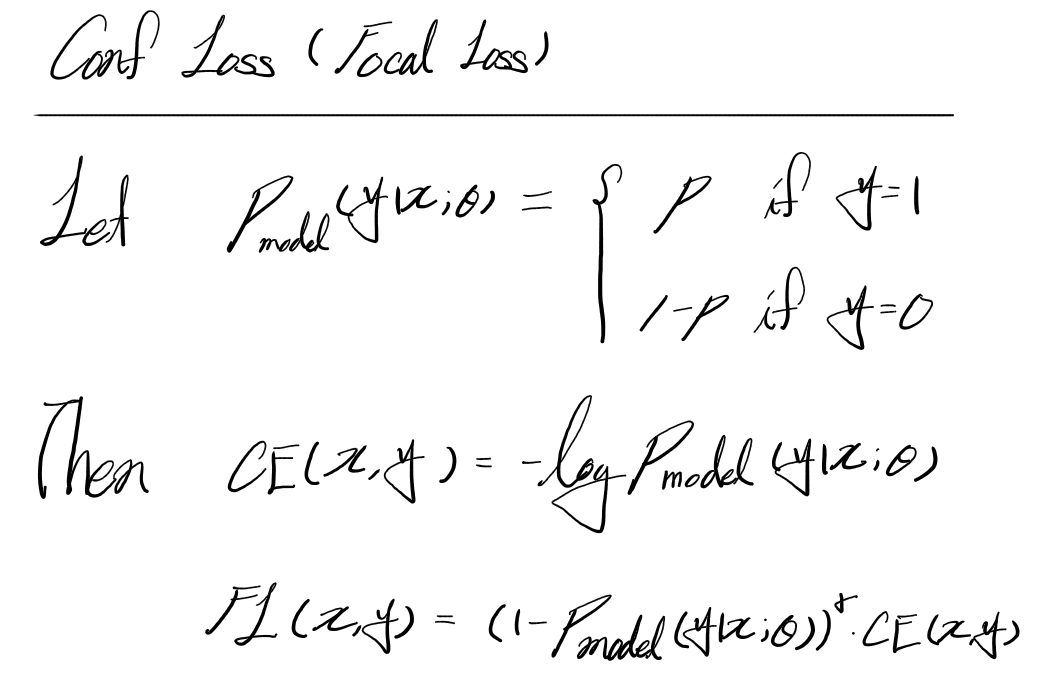 Conf Loss (Focal Loss)
Let P_model(y|x;θ) = { p if y=1
1-p if y=0
Then CE(x,y) = -log P_model(y|x;θ)
FL(x,y) = (1-P_model(y|x;θ))^γ · CE(x,y)